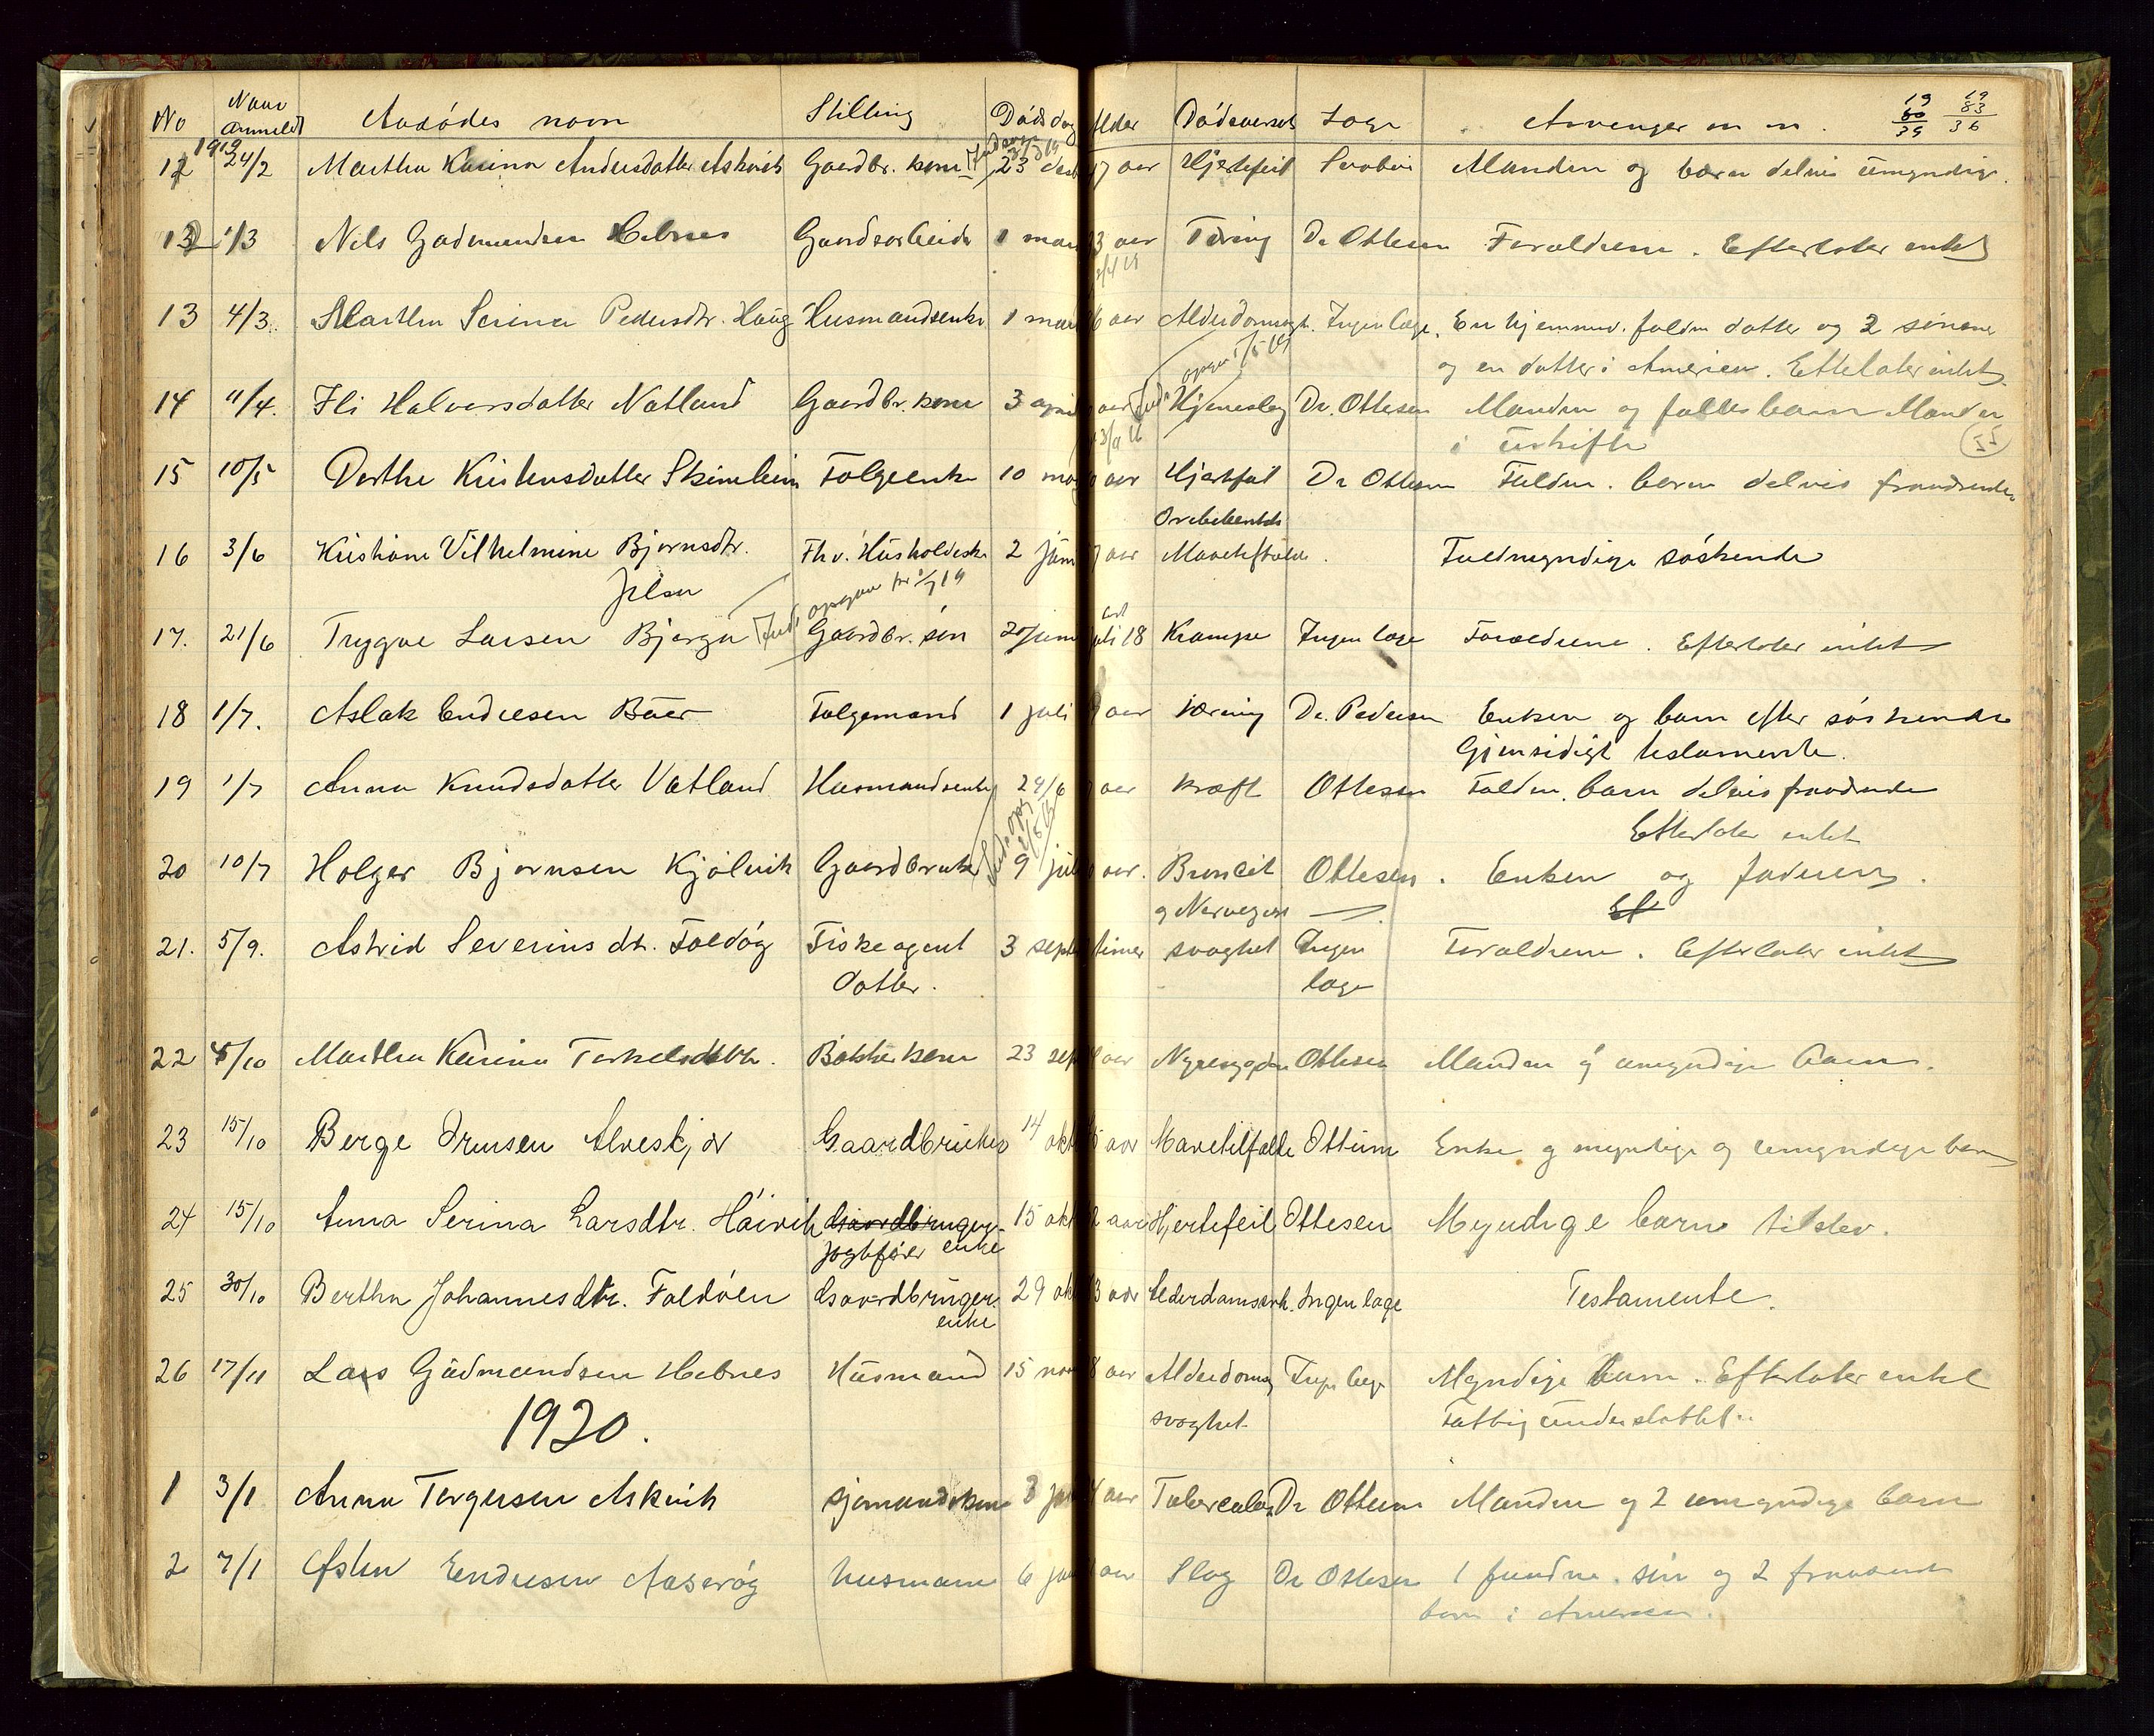 No Naar anmeldt Avdødes navn Stilling Dødsdag Alder Dødsaarsak Læge Arvinger m m. 19 60 39 19 83 36
1919
12 24/2 Martha Karina Andersdatter Askvik Gaardbr. kone 23 7 aar Hjertefeil Manden og børn delvis umyndige.
13 1/3 Nils Gudmundsen Hebnes Gaardsarbeider 1 mars 3 aar Tæring Dr Ottesen Forældrene. Efterlater intet
13 4/3. Martha Serina Pedersdtr. Haug Husmandsenke 1 mars 6 aar Alderdomssvgh. Ingen læge. En hjemmev. fuldm datter og 2 sønner
og en datter i Amerika. Efterlater intet
14 11/4. Ili Halvorsdatter Natland Gaardbr. kone 3 april aar Hjerneslag Dr. Ottesen Manden og fælles barn Manden
i uskifte
15 10/5 Dorthe Kristensdatter Skimleim Folgeenke 10 mai aar Hjertefeil Dr Ottesen Fuldm. børn delvis fraværende
16 3/6 Kristiane Vilhelmine Bjørnsdtr. Fhv. Husholderske 2 juni aar Mavetilfælde. Fuldmyndige søskende
Jelsa
17. 21/6 Trygve Larsen Bjerga Gaardbr. søn 20 juni juli 18 Krampe Ingen læge Forældrene. Efterlater intet
18 1/7. Aslak Endresen Bøer Folgemand 1 juli aar Tæring Dr. Pedersen Enken og barn efter søskende
Gjensidigt testamente.
19 1/7 Anna Knudsdatter Vatland Husmandsenke 24/6 aar kræft Ottesen Fuldm. barn delvis fraværende
Efterlater intet
20 10/7 Holger Bjørnsen Kjølvik Gaardbruker 9 juli aar. Ottesen. Enken og faderen.
21. 5/9. Astrid Severinsdtr. Foldøy Fiskeagent 3 sept timer svaghet Ingen Forældrene. Efterlater intet
datter. læge
22 4/10 Martha Karina Torkelsdtr. kone 23 sept aar Nyresygdom Ottesen Manden og umyndige børn.
23 15/10 Berge Ormsen Alveskjær Gaardbruker 14 okt 5 aar Mavetilfælde Ottesen Enke og myndige og umyndige børn
24 15/10 Anna Serina Larsdtr. Høivik Gaardbruger- 15 okt 2 aar Hjertefeil Ottesen Myndige børn tilstev.
jagtfører enke
25 30/10 Bertha Johannesdtr. Foldøen Gaardbruger 29 okt 3 aar Alderdomssvk. Ingen læge Testamente.
enke
26 17/11 Lars Gudmundsen Hebnes Husmand 15 nov 8 aar Alderdoms Ingen læge Myndige barn. Efterlater intet
svaghet. Fattig understøttet
1920.
1 3/1 Anna Torgersen Askvik sjømandskone 3 jan 4 aar Tuberculose Dr Ottesen Manden og 2 umyndige børn
2 7/1 Østen Endresen Aaserøy husmand 6 jan aar Slag Dr Ottesen 1 søn og 2 fraværende
børn i Amerika.